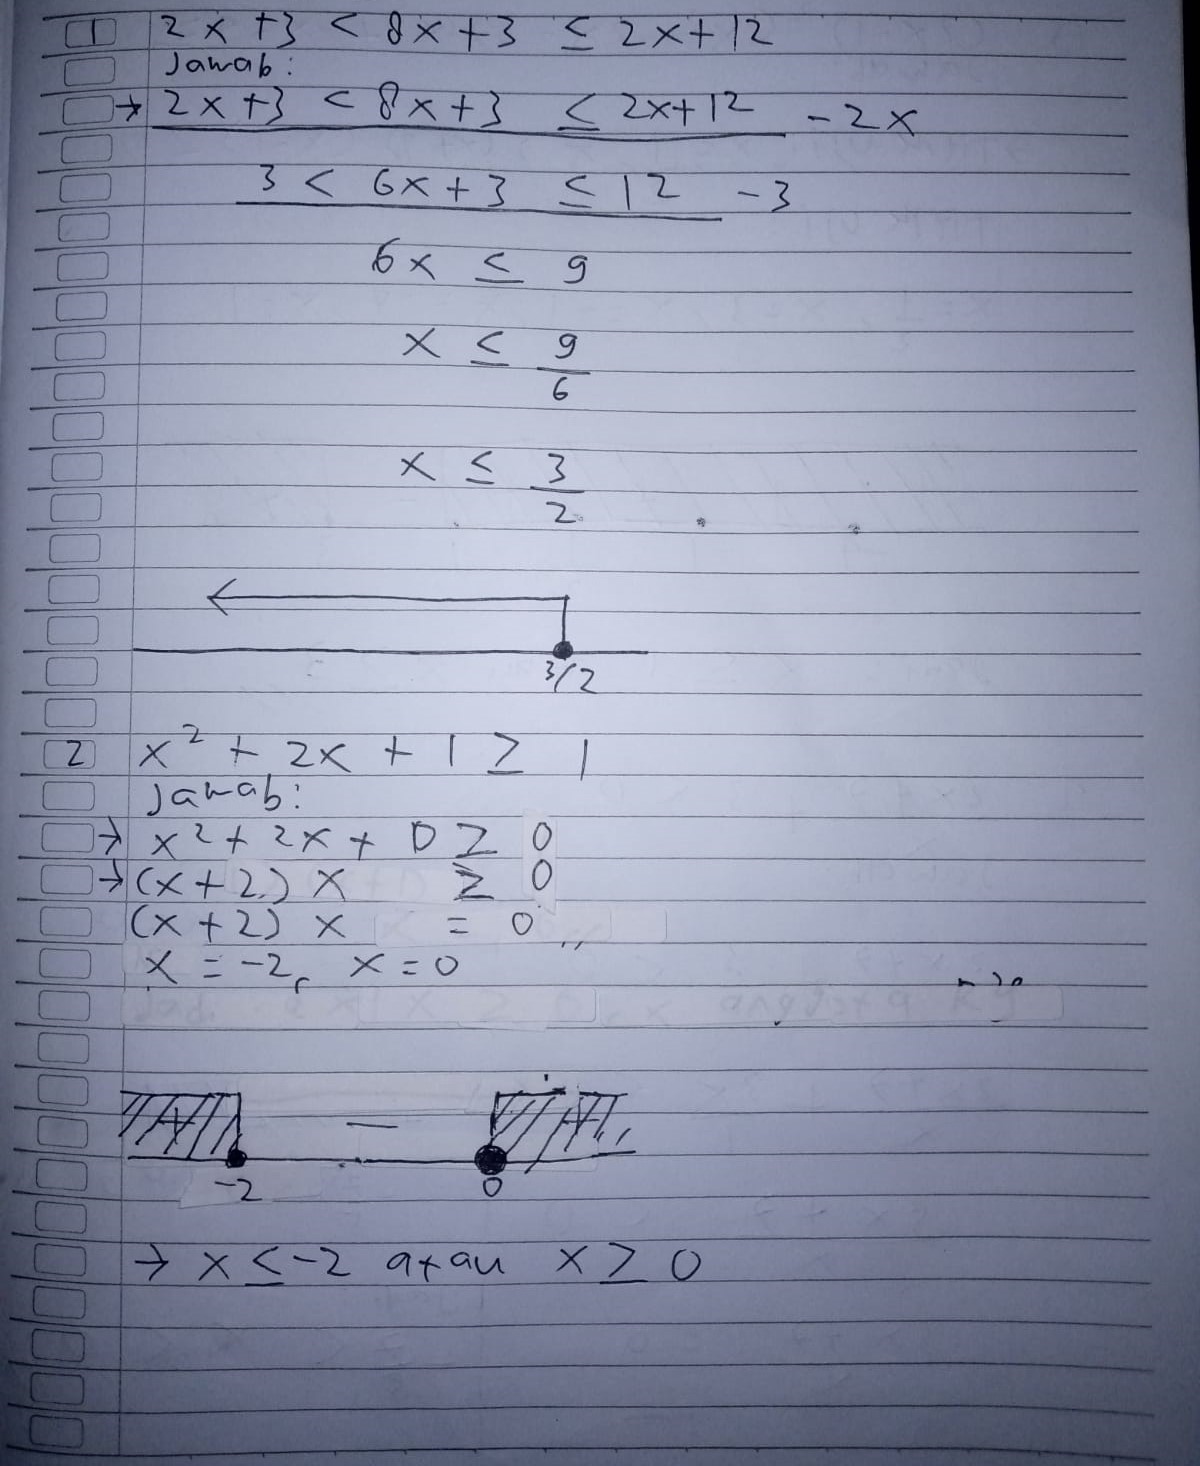 1 2x+3 < 8x+3 ≤ 2x+12
Jawab:
→ 2x+3 < 8x+3 ≤ 2x+12 -2x
3 < 6x+3 ≤ 12 -3
6x ≤ 9
x ≤ 9/6
x ≤ 3/2
3/2
2 x² + 2x + 1 ≥ 1
Jawab:
→ x² + 2x + 0 ≥ 0
→ (x+2) x ≥ 0
(x+2) x = 0
x = -2, x = 0
+ − +
-2 0
→ x ≤ -2 atau x ≥ 0